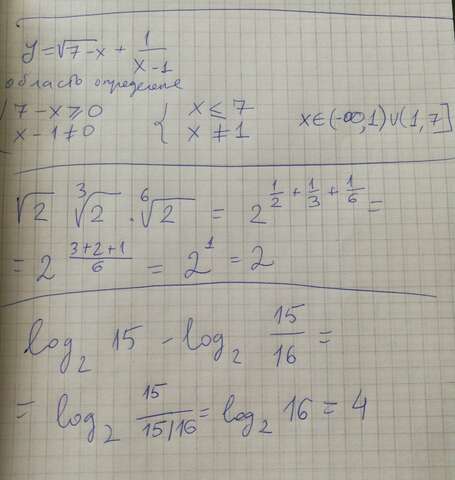 y = √7-x + 1/(x-1)
область определене
7-x ⩾ 0 { x ≤ 7 x∈(-∞,1)∪(1,7]
x-1≠0 x ≠ 1
√2 ∛2 · ⁶√2 = 2^(1/2+1/3+1/6) =
= 2^((3+2+1)/6) = 2^1 = 2
log₂ 15 - log₂ 15/16 =
= log₂ 15/(15/16) = log₂ 16 = 4